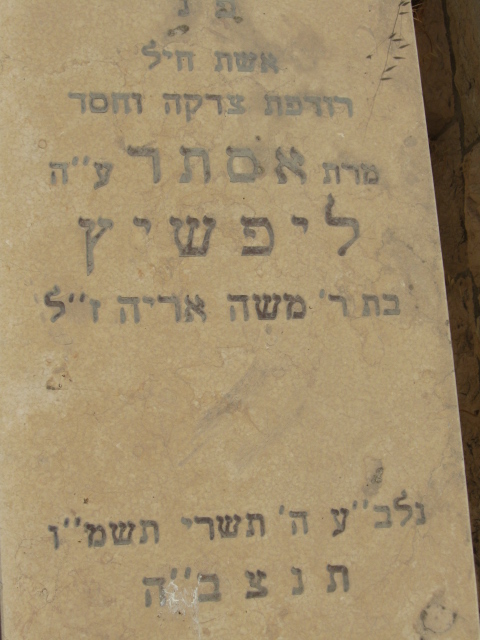 פ נ
אשת חיל
רודפת צדקה וחסד
מרת אסתר ע"ה
ליפשיץ
בת ר' משה אריה ז"ל
נלב"ע ה' תשרי תשמ"ו
ת נ צ ב"ה